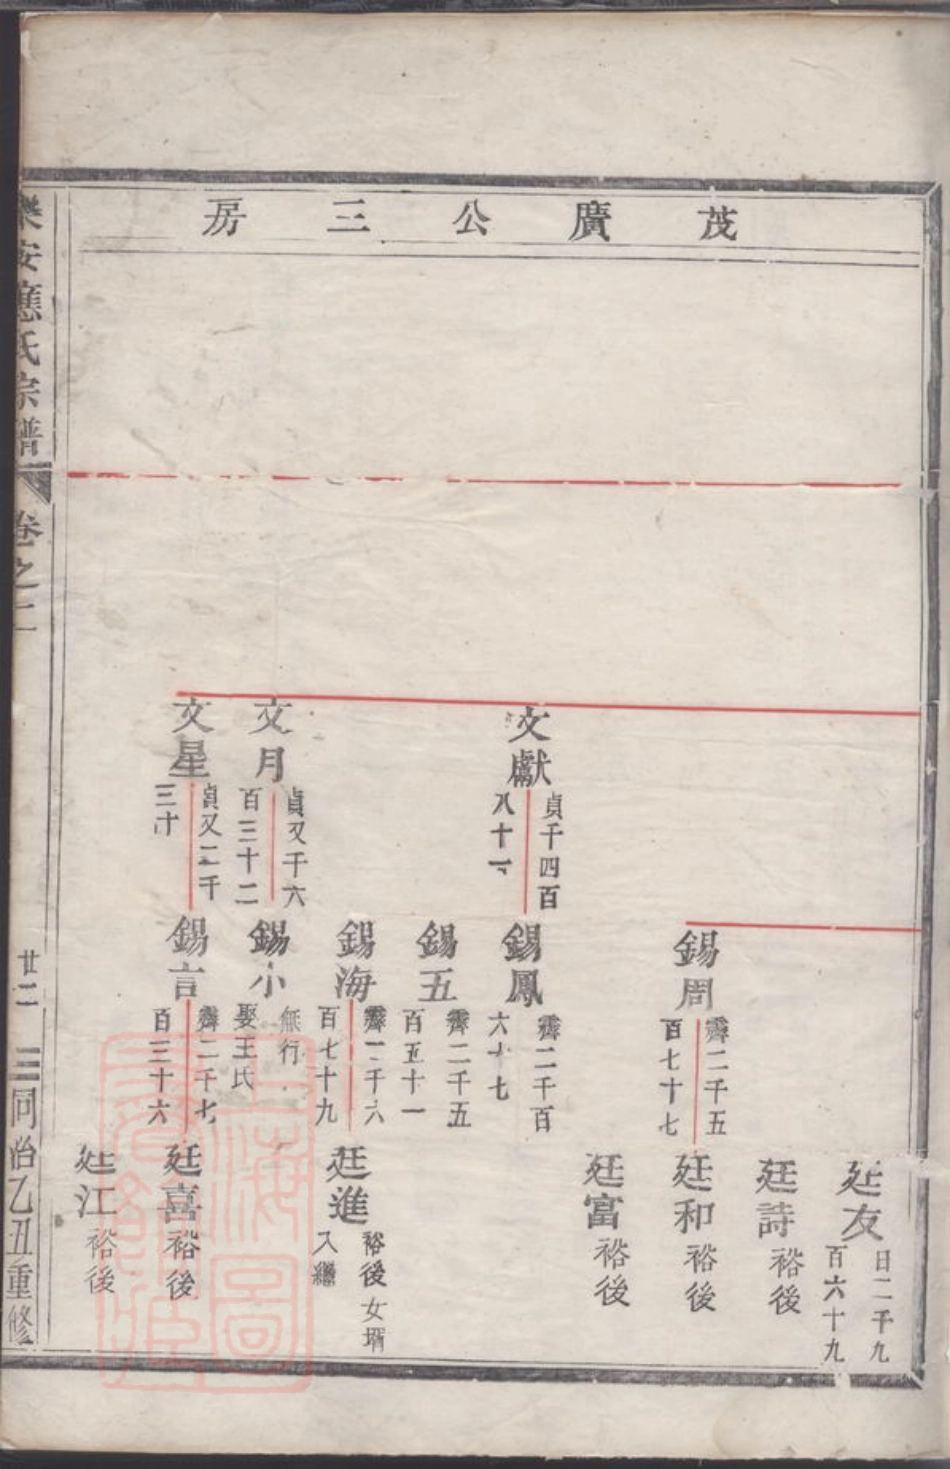 茂廣公三房
廷友
日二千九
百六十九
廷詩
裕後
錫周
霽二千五
百七十七
廷和
裕後
廷富
裕後
文獻
貞千四百
八十一
錫鳳
霽二千百
六十七
錫五
霽二千五
百五十一
錫海
霽二千六
百七十九
廷進
裕後女壻
入繼
文月
貞又千六
百三十二
錫小
無行
娶王氏
文星
貞又二千
三十
錫言
霽二千七
百三十六
廷喜
裕後
廷江
裕後
樂安應氏宗譜
卷之二
廿二
同治乙丑重修